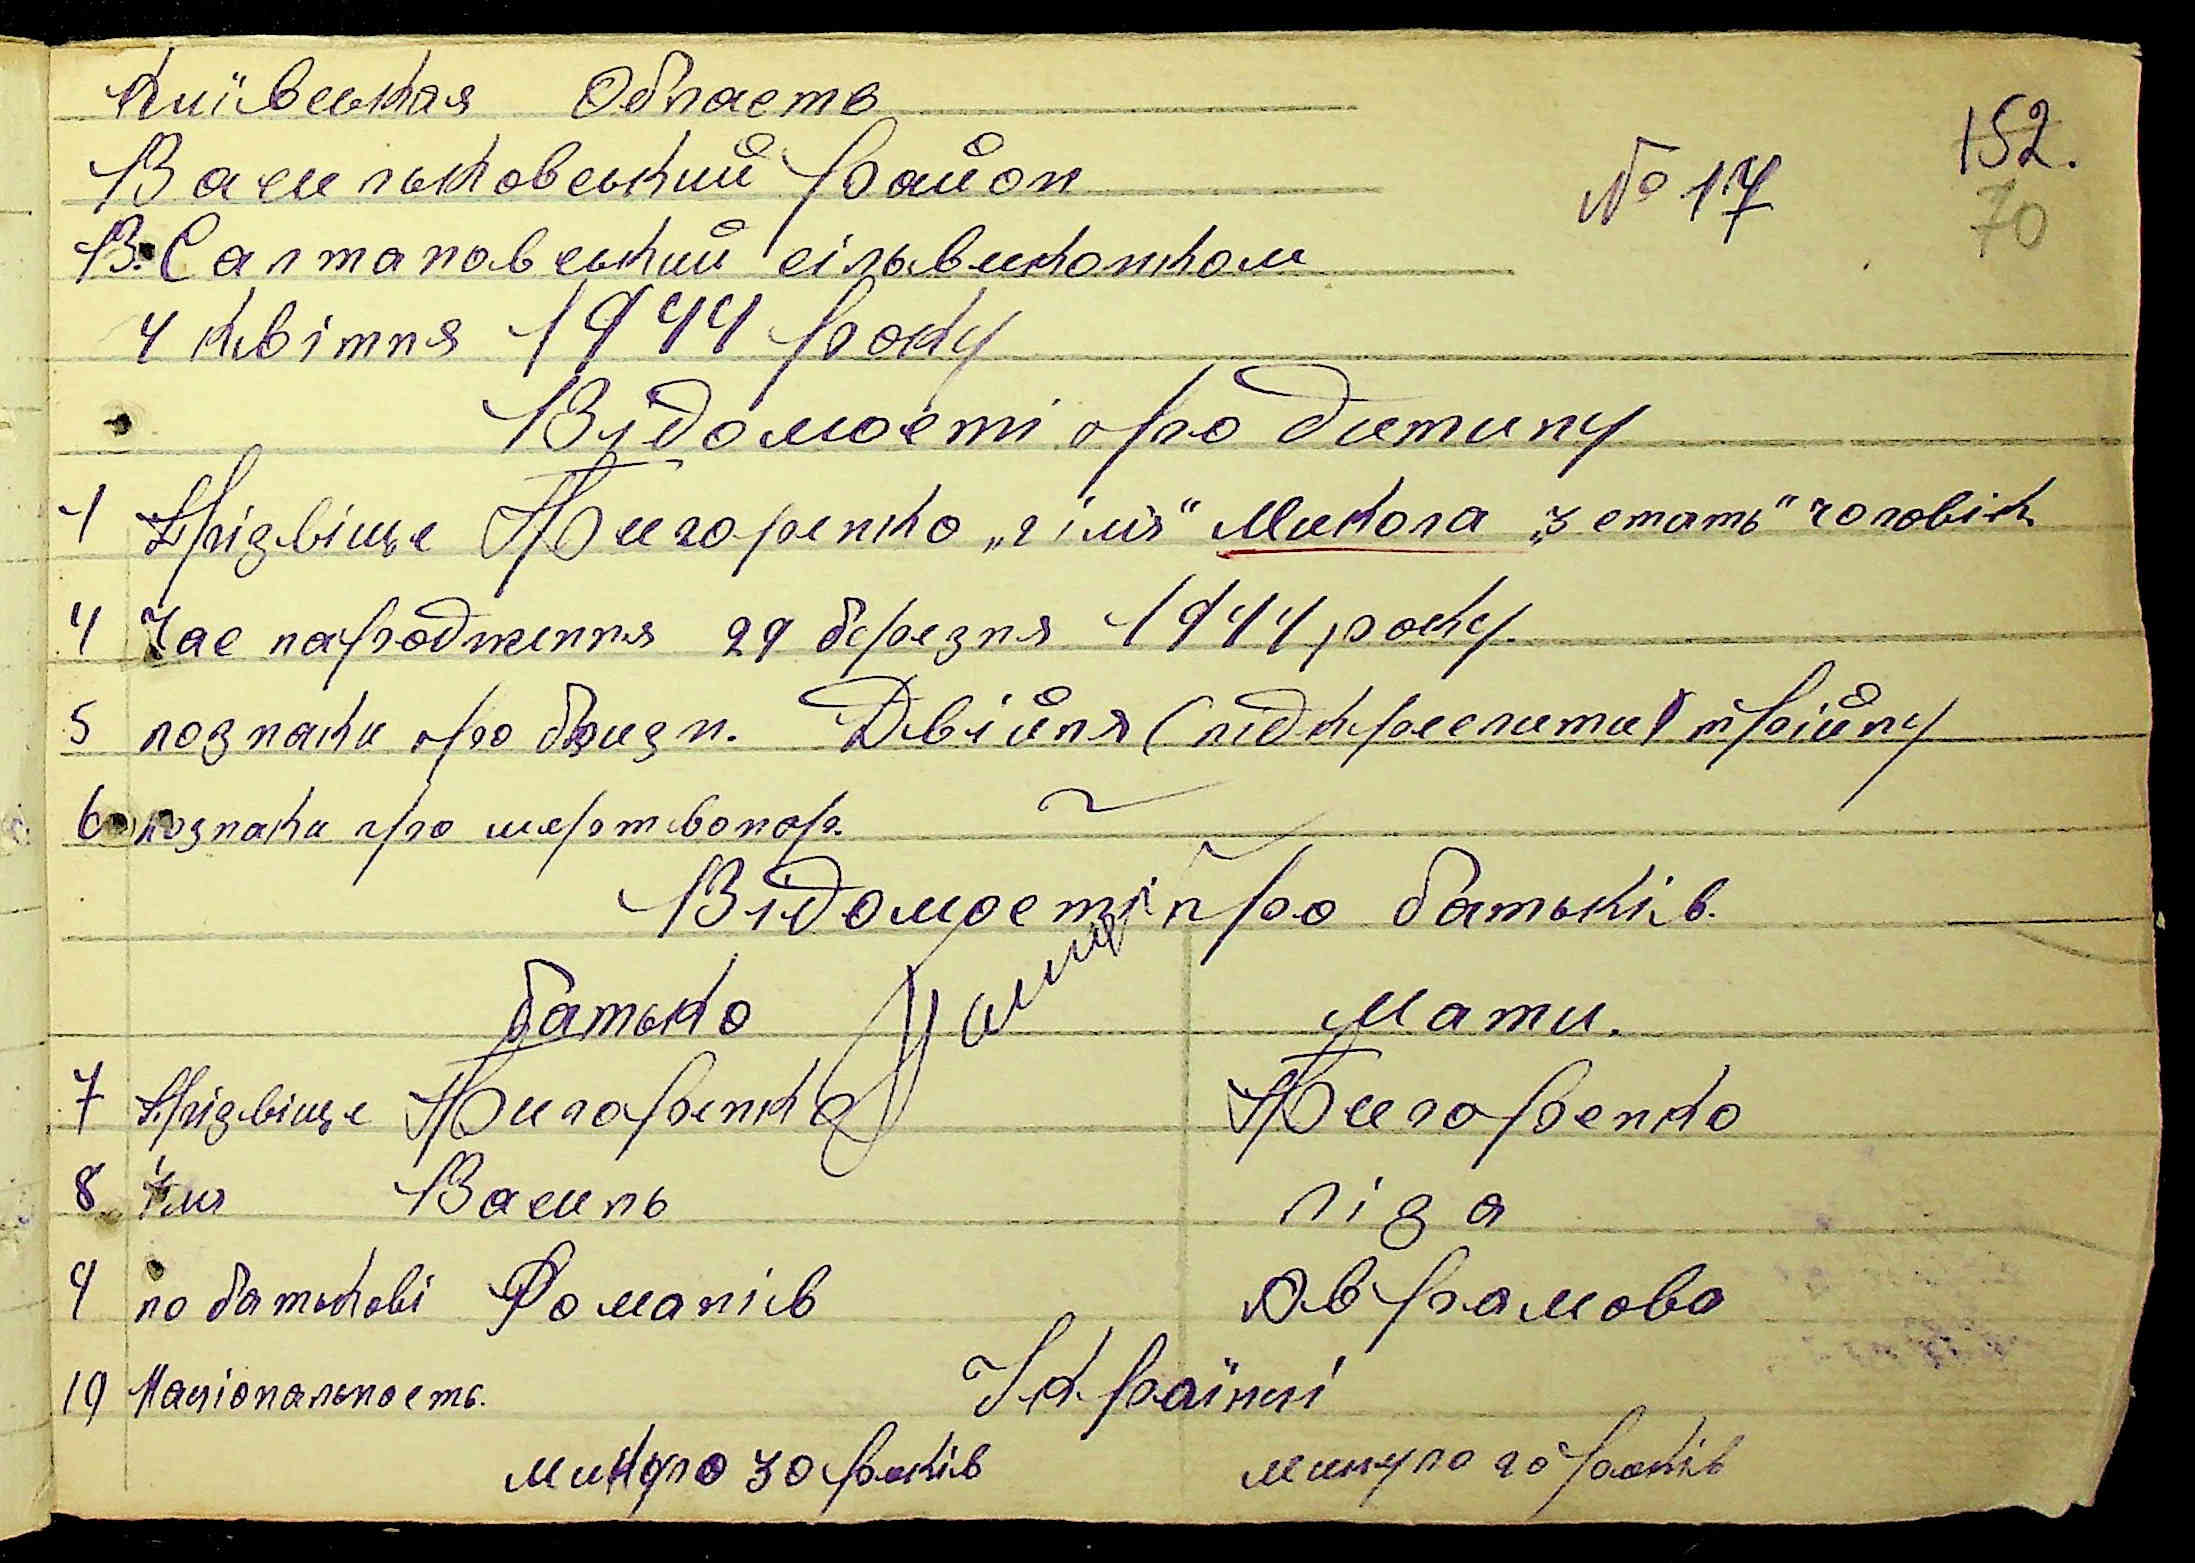 Київськая Область
Васильковський район
№ 17
152.
70
В. Салтановський сільвиконком
4 квітня 1944 року
Відомості про дитину
1 Прізвіще Жигоренко „гімя" Микола „3 стать" чоловік
4 Час народження 29 березня 1944 року.
5 познаки про близн. Двійня (підкреслити) трійну
6 познаки про мертвонар.
Відомості про батьків.
батько мати.
7 Прізвіще Жигоренко Жигоренко
8 імя Василь Ліза
9 по батькові Романів Аврамова
10 Національность. Українці
минуло 30 років минуло 20 років